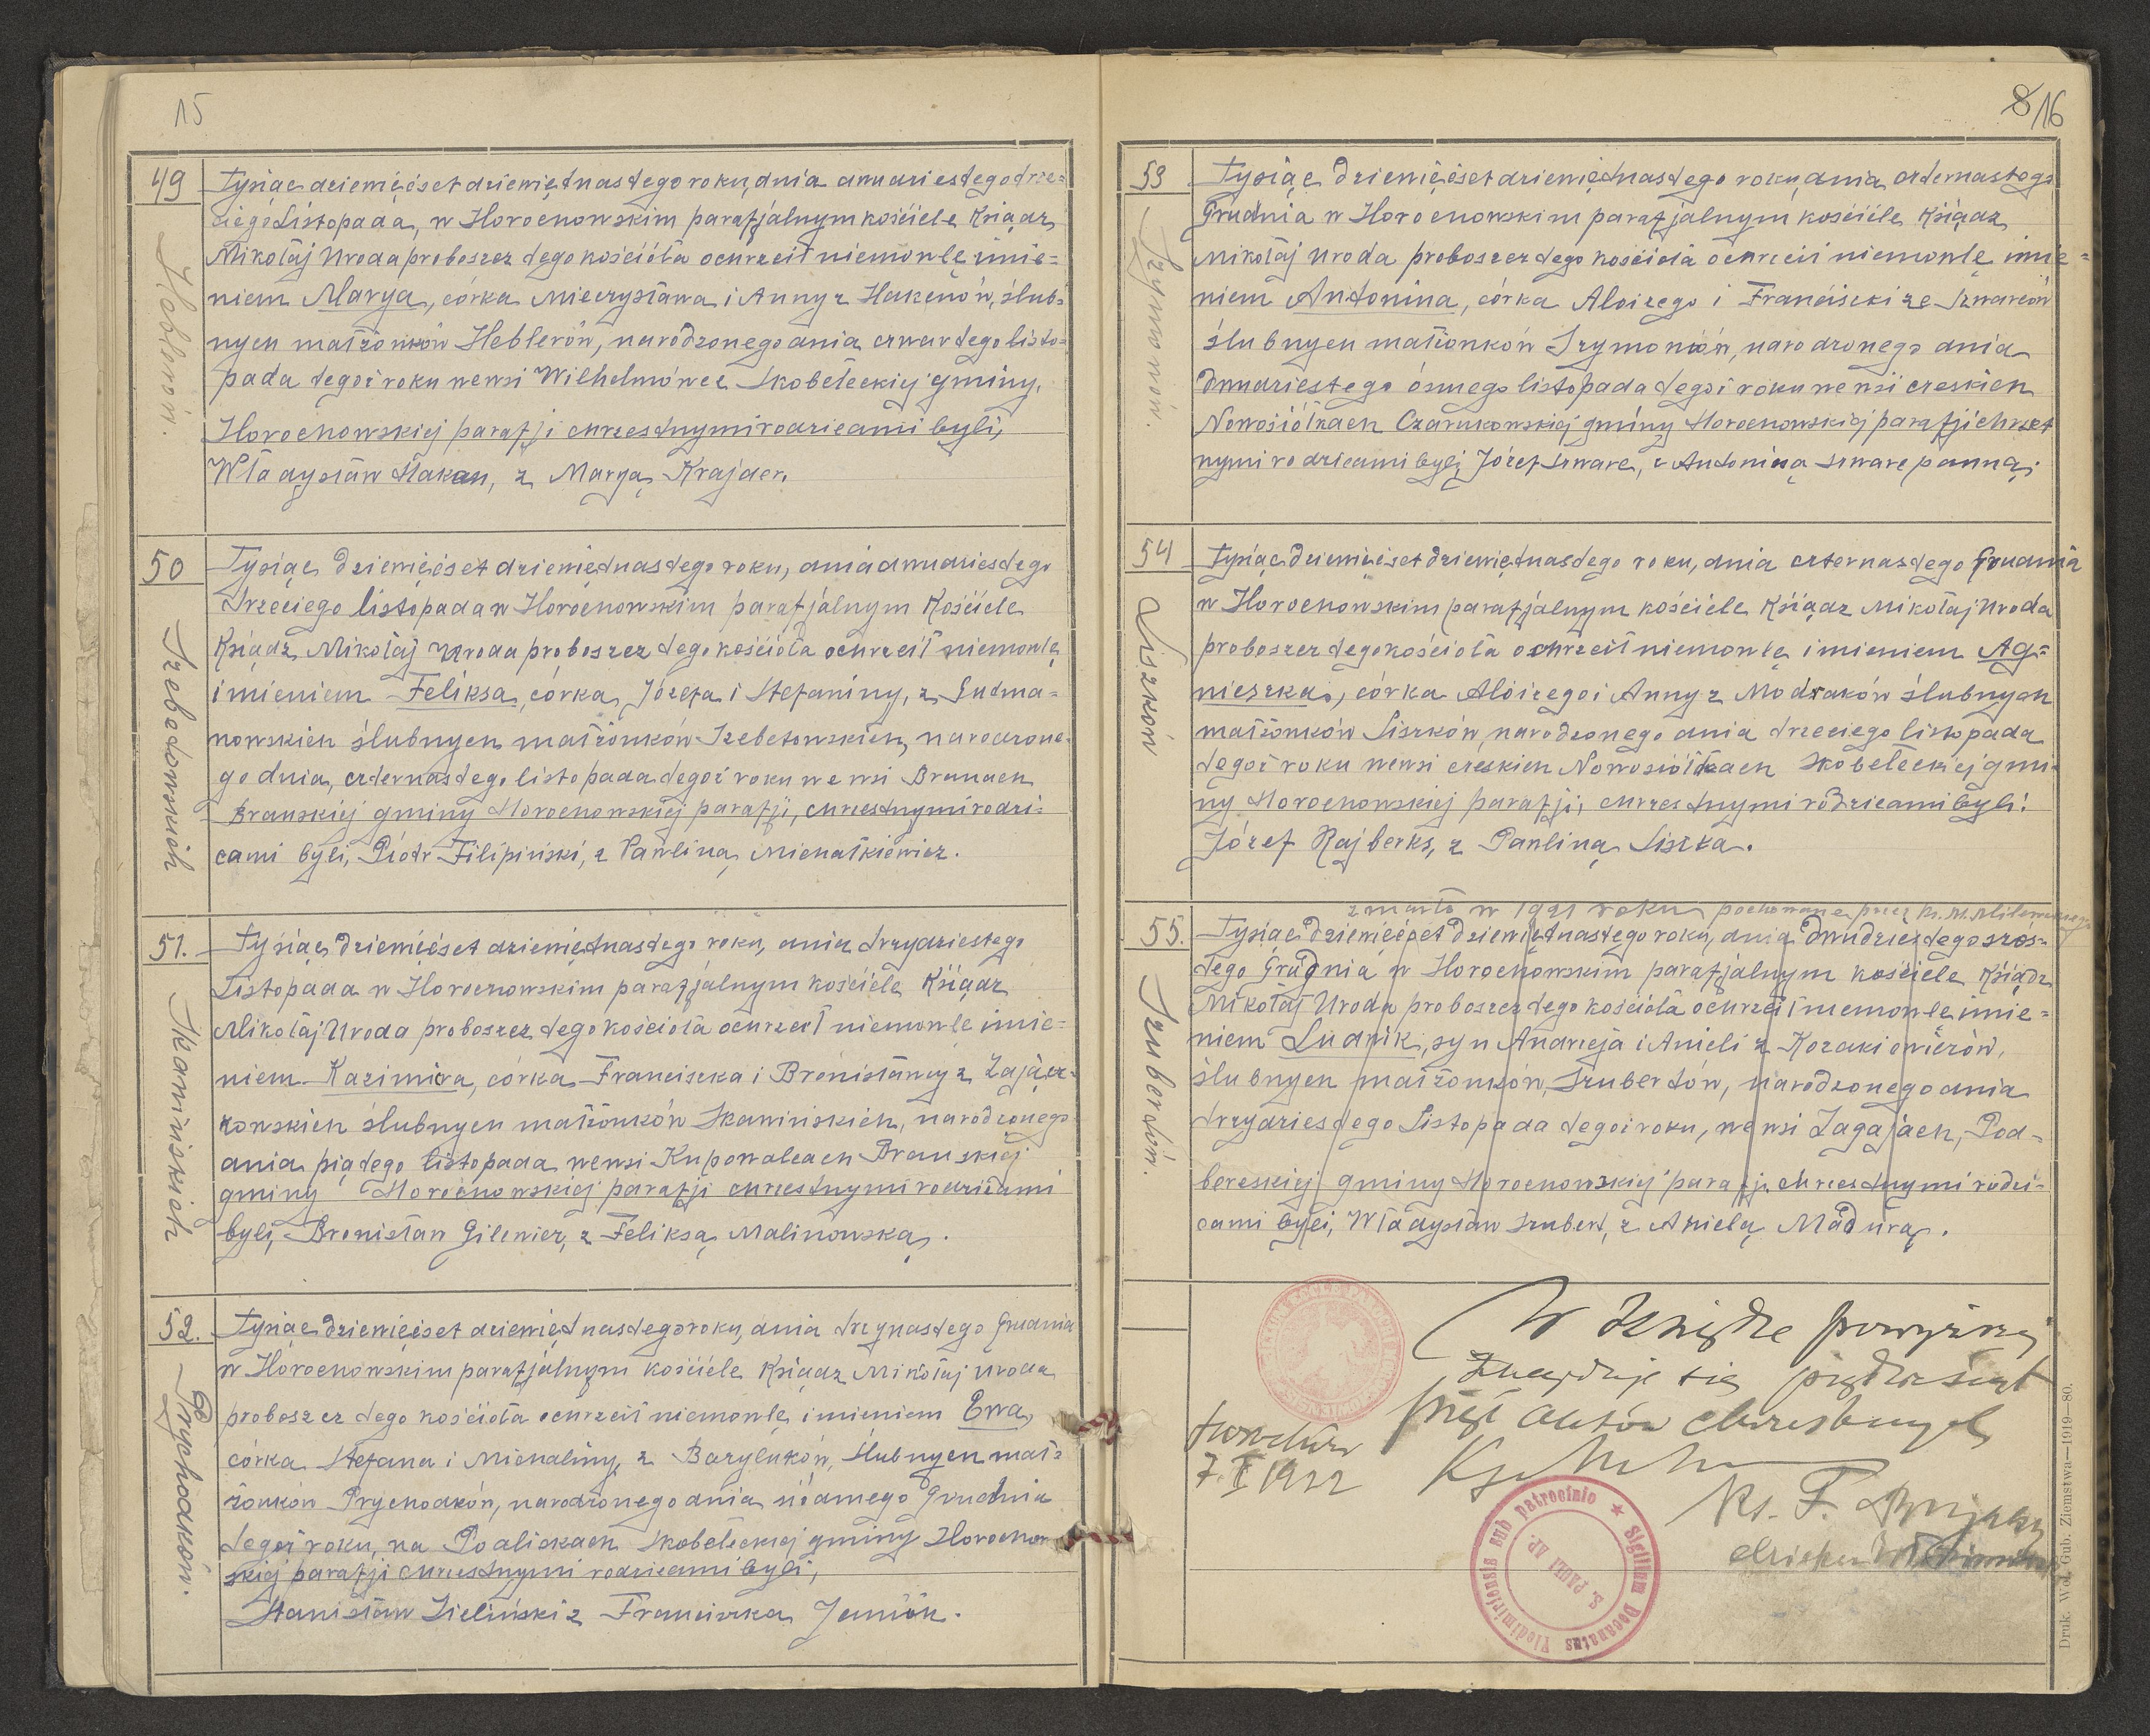 15
49
Heblerów.
Tysiąc dziewięćset dziewiętnastego roku, dnia dwudziestego trze=
ciego Listopada, w Horochowskim parafjalnym kościele Ksiądz
Mikołaj Uroda proboszcz tego kościoła ochrzcił niemowlę imie=
niem Marya, córka Mieczysława i Anny z Hakenów, ślub=
nych małżonków Heblerów, narodzonego dnia czwartego listo=
pada tegoż roku we wsi Wilhelmówce Skobełeckiej gminy,
Horochowskiej parafji chrzestnymi rodzicami byli,
Władysław Haken, z Maryą Krajder.
50
Szebetowskich
Tysiąc dziewięćset dziewiętnastego roku, dnia dwudziestego
trzeciego listopada w Horochowskim parafjalnym Kościele
Ksiądz Mikołaj Uroda proboszcz tego kościoła ochrzcił niemowlę
imieniem Feliksa, córka Józefa i Stefaniny, z Gutma=
nowskich ślubnych małżonków Szebetowskich, narodzone=
go dnia, czternastego listopada tegoż roku we wsi Branach
Branskiej gminy Horochowskiej parafji, chrzestnymi rodzi=
cami byli, Piotr Filipiński, z Pawliną Michałkiewicz.
51.
Skawińskich
Tysiąc dziewięćset dziewiętnastego roku, dnia trzydziestego
Listopada w Horochowskim parafjalnym kościele Ksiądz
Mikołaj Uroda proboszcz tego kościoła ochrzcił niemowlę imie=
niem Kazimira, córka Franciszka i Bronisławy z Zającz=
kowskich ślubnych małżonków Skawińskich, narodzonego
dnia piątego listopada we wsi Kupowalcach Branskiej
gminy Horochowskiej parafji chrzestnymi rodzicami
byli, Bronisław Gilewicz, z Feliksą Malinowską.
52.
Prychodków.
Tysiąc dziewięćset dziewiętnastego roku, dnia trzynastego Grudnia
w Horochowskim parafjalnym kościele Ksiądz Mikołaj Uroda
proboszcz tego kościoła ochrzcił niemowlę imieniem Ewa,
córka Stefana i Michaliny, z Baryluków, ślubnych mał=
żonków Prychodków, narodzonego dnia siódmego Grudnia
tegoż roku, na Podliskach Skobełeckiej gminy Horochow
skiej parafji chrzestnymi rodzicami byli,
Stanisław Zieliński z Franciszka Jemiok.
8/16
53
Szymonów.
Tysiąc dziewięćset dziewiętnastego roku, dnia czternastego
Grudnia w Horochowskim parafjalnym kościele Ksiądz
Mikołaj Uroda proboszcz tego kościoła ochrzcił niemowlę imie=
niem Antonina, córka Aloizego i Franciszki ze Szwarców
ślubnych małżonków Szymonów, narodzonego dnia
dwudziestego ósmego listopada tegoż roku we wsi czeskich
Nowosiółkach Czarukowskiej gminy Horochowskiej parafji chrzest
nymi rodzicami byli, Józef Szwarc, z Antoniną Szwarc panną.
54
Liszków
Tysiąc dziewięćset dziewiętnastego roku, dnia czternastego Grudnia
w Horochowskim parafjalnym kościele Ksiądz Mikołaj Uroda
proboszcz tego kościoła ochrzcił niemowlę imieniem Ag=
nieszka, córka Aloizego i Anny z Modraków ślubnych
małżonków Liszków, narodzonego dnia trzeciego listopada
tegoż roku we wsi czeskich Nowosiółkach Skobełeckiej gmi=
ny Horochowskiej parafji, chrzestnymi rodzicami byli:
Józef Rajberks, z Pawliną Liszka.
zmarło w 1921 roku pochowane przez ks. M. Milewskiego
55.
Szubertów.
Tysiąc dziewięćset dziewiętnastego roku, dnia dwudziestego szós=
tego Grudnia w Horochowskim parafjalnym kościele Ksiądz
Mikołaj Uroda proboszcz tego kościoła ochrzcił niemowlę imie=
niem Ludwik, syn Andrzeja i Anieli z Kozakiewiczów,
ślubnych małżonków, Szubertów, narodzonego dnia
trzydziestego Listopada tegoż roku, we wsi Zagajach, Pod=
bereskiej gminy Horochowskiej parafji chrzestnymi rodzi=
cami byli, Władysław Szubert, z Anielą Madurą.
W księdze powyższej
znajduje się pięćdziesiąt
pięć aktów chrzestnych
Horochów
7. I 1922
Ks. F.
Sigillum Decanatus Vlodimiriensis sub patrocinio
S. PAULI AP.
Druk. Woł. Gub. Ziemstwa—1919—80.